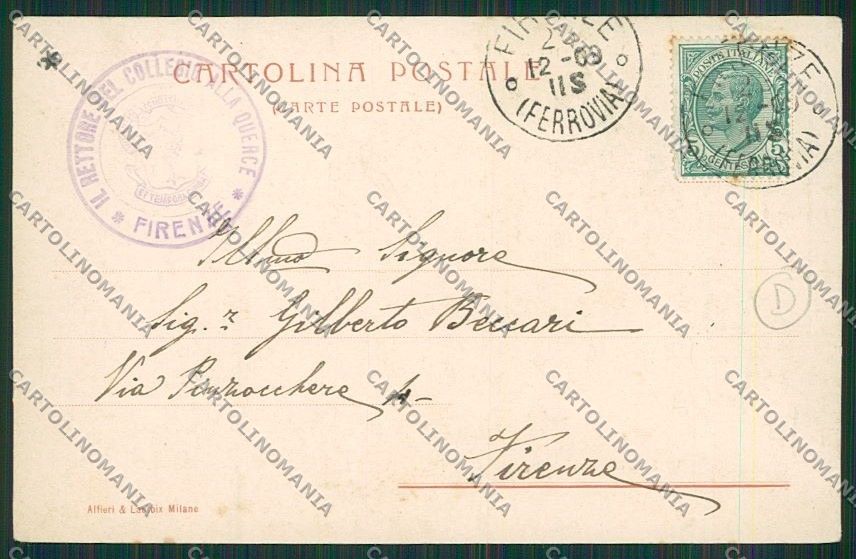 CARTOLINA POSTALE
(CARTE POSTALE)
IL RETTORE DEL COLLEGIO ALLA QUERCE
* FIRENZE *
FIRENZE
2-
12-
11S
(FERROVIA)
POSTE ITALIANE
5
Illmo Signore
Sig.r Gilberto Beccari
Via Pinzochere 4-
Firenze
D
Alfieri & Lacroix Milano
CARTOLINOMANIA